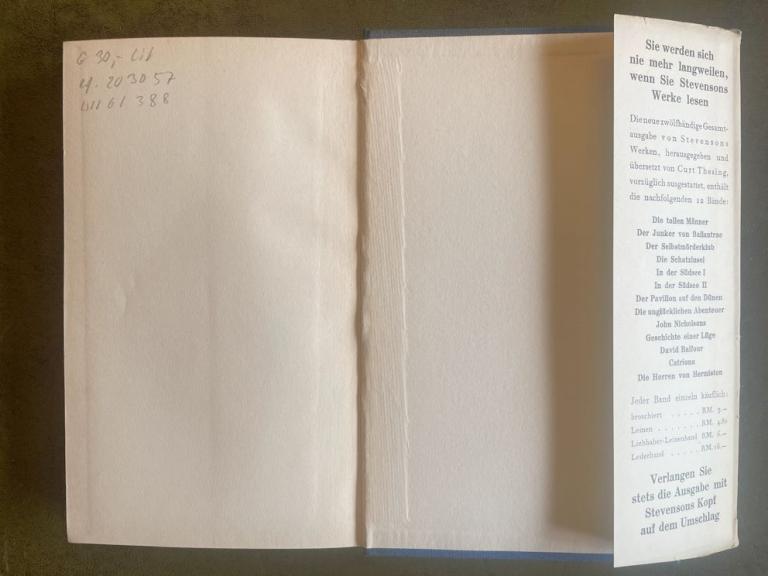 30,-
203057
61 388
Sie werden sich
nie mehr langweilen,
wenn Sie Stevensons
Werke lesen
Die neue zwölfbändige Gesamt-
ausgabe von Stevensons
Werken, herausgegeben und
übersetzt von Curt Thesing,
vorzüglich ausgestattet, enthält
die nachfolgenden 12 Bände:
Die tollen Männer
Der Junker von Ballantrae
Der Selbstmörderklub
Die Schatzinsel
In der Südsee I
In der Südsee II
Der Pavillon auf den Dünen
Die unglücklichen Abenteuer
John Nicholsons
Geschichte einer Lüge
David Balfour
Catriona
Die Herren von Hermiston
Jeder Band einzeln käuflich:
broschiert . . . . . RM. 3.—
Leinen . . . . . . . RM. 4.80
Liebhaber-Leinenband RM. 6.—
Lederband . . . . . RM. 16.—
Verlangen Sie
stets die Ausgabe mit
Stevensons Kopf
auf dem Umschlag